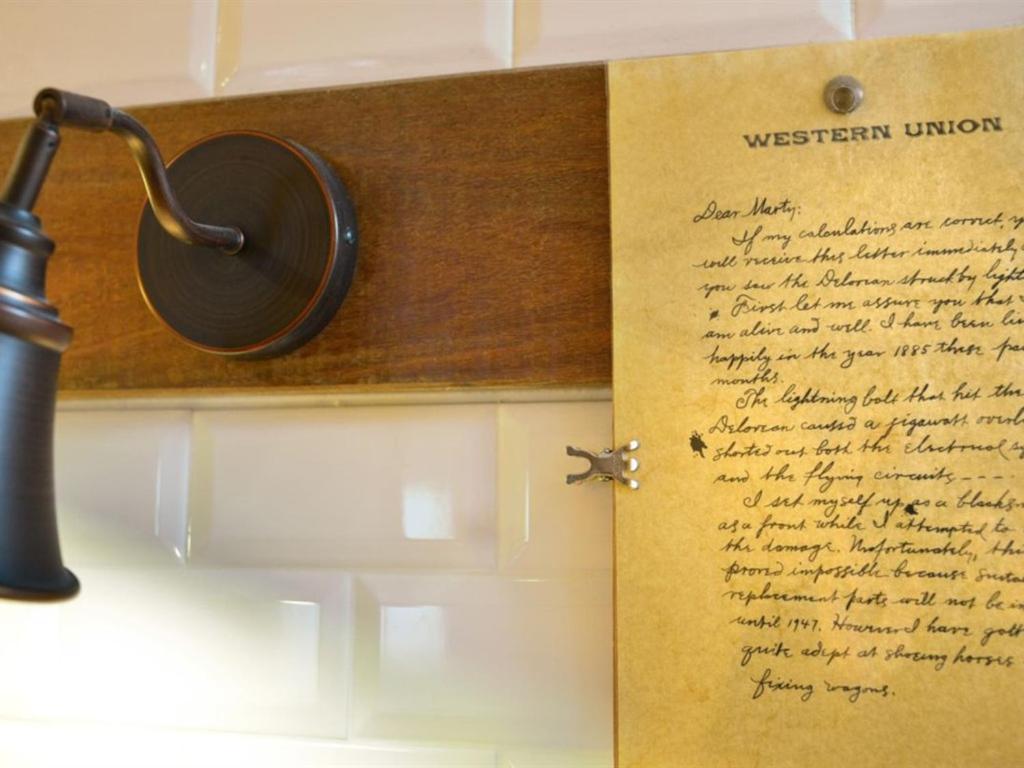 WESTERN UNION
Dear Marty:
If my calculations are correct, y
will receive this letter immediately
you saw the Delorean struck by light
First let me assure you that
am alive and well. I have been li
happily in the year 1885 these pa
months.
The lightning bolt that hit the
Delorean caused a jigawatt overl
shorted out both the electrical s
and the flying circuits ----
I set myself up as a blacks
as a front while I attempted to
the damage. Unfortunately, thi
proved impossible because suita
replacement parts will not be in
until 1947. However I have gott
quite adept at shoeing horses
fixing wagons.